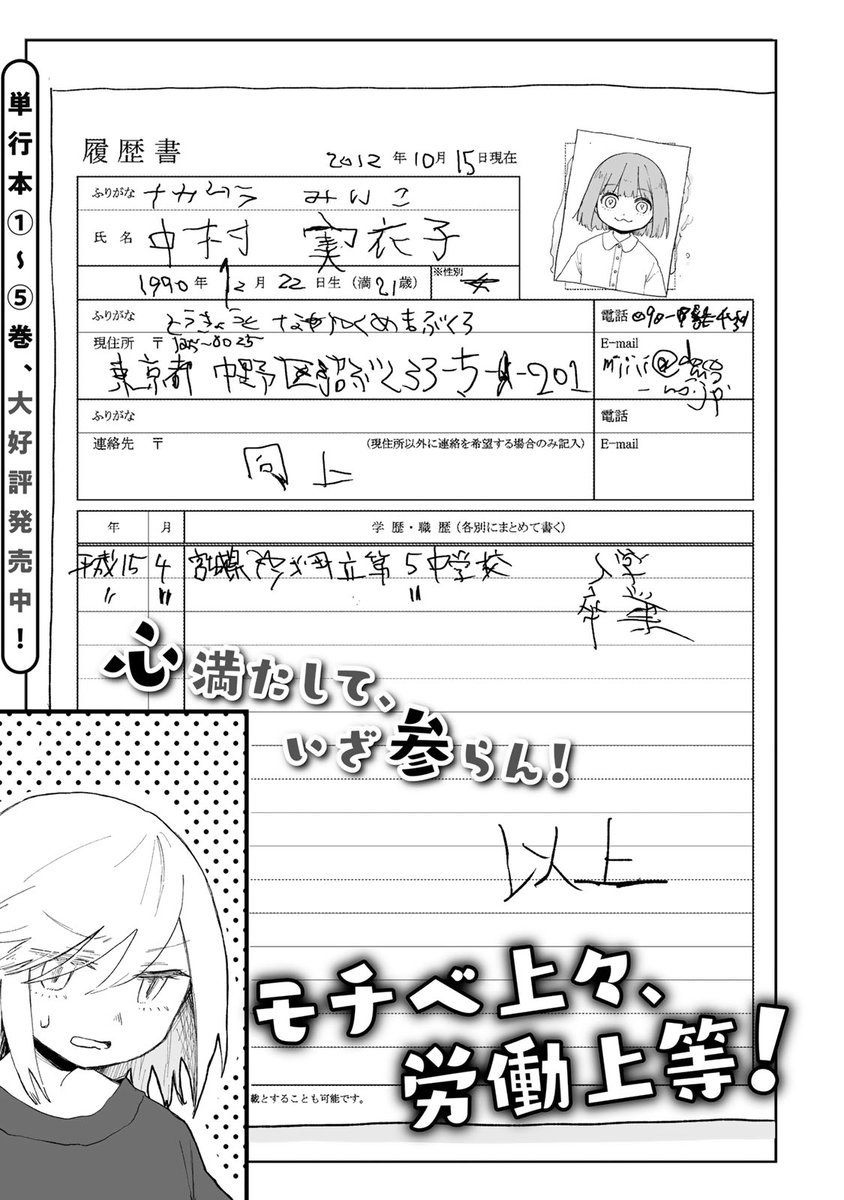 単行本①〜⑤巻、大好評発売中！
履歴書
2012年10月15日現在
ふりがな ナカムラ みいこ
氏名 中村 実衣子
1990年12月22日生（満21歳） ※性別
ふりがな とうきょうと なかのくぬまぶくろ
電話 090-
現住所 〒
東京都 中野区沼ぶくろ3-5-1-201
E-mail
ふりがな
電話
連絡先 〒 （現住所以外に連絡を希望する場合のみ記入）
同上
E-mail
年 月 学歴・職歴（各別にまとめて書く）
平成15 4 宮城県 町立第5中学校 入学
〃 〃 〃 卒業
心満たして、
いざ参らん！
以上
モチベ上々、
労働上等！
載とすることも可能です。